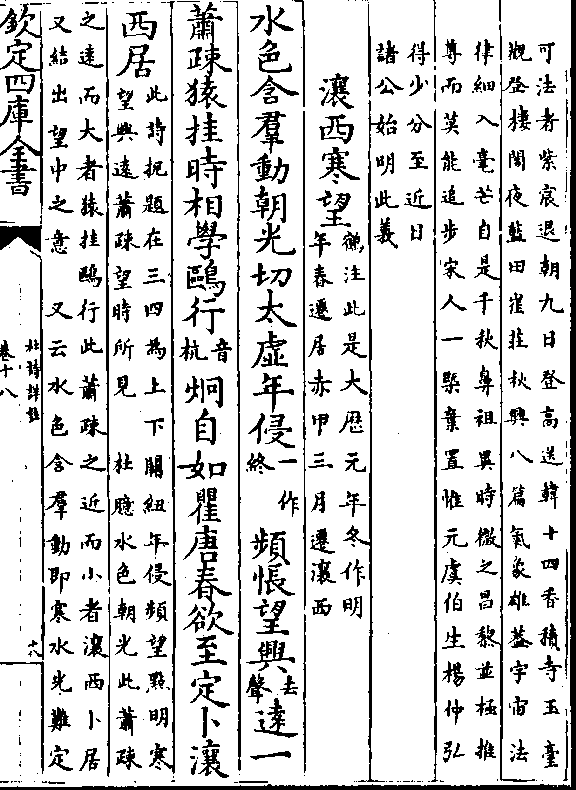 可法者紫宸退朝九日登高送韓十四香積寺玉臺
觀登樓閣夜藍田崔荘秋興八篇氣象雄蓋宇宙法
律細入毫芒自是千秋鼻祖異時微之昌黎並極推
尊而莫能追步家人一槩棄置惟元虞伯生楊仲弘
得少分至近日
諸公始明此義
瀼西寒望鶴注此是大厯元年冬作明
年春遷居赤甲三月遷瀼西
水色含羣動朝光切太虛年侵一作
終頻悵望興去
聲逺一
蕭踈猿挂時相學鷗行音
杭炯自如瞿唐春欲至定卜瀼
西居此詩扼題在三四為上下關紐年侵頻望㸃明寒
望興逺蕭踈望時所見 杜臆水色朝光此蕭踈
之逺而大者猿挂鷗行此蕭踈之近而小者瀼西卜居
又結出望中之意 又云水色含羣動即寒水光難定
欽定四庫全書
杜詩詳註
卷十八
十八